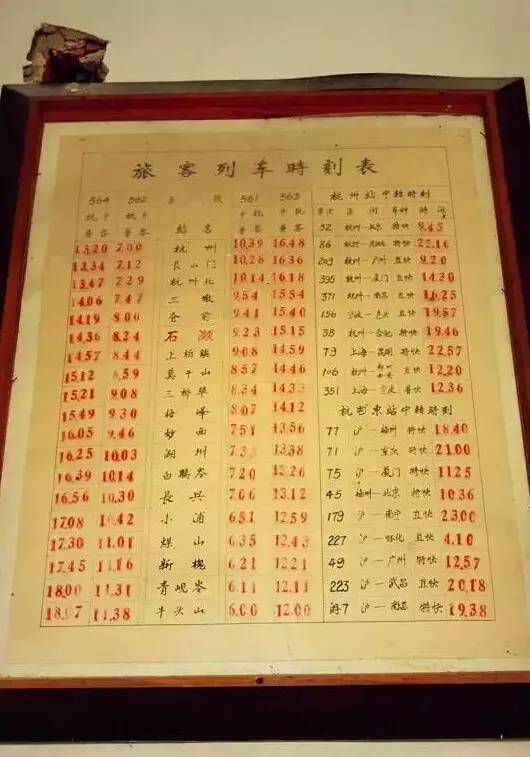 旅客列车時刻表
564 562 区 段 561 563 杭州站中转時刻
杭牛 杭牛 牛杭 牛杭 车次 区间 车种 時间
普客 普客 站名 普客 普客 32 杭州—北京 特快 9.45
13.20 7.00 杭州 10.39 16.48 86 杭州 特快 22.16
13.34 7.12 艮山门 10.28 16.36 209 杭州—广州 直快 9.20
13.47 7.29 杭州北 10.14 16.18 395 杭州—厦门 直快 14.30
14.06 7.47 三墩 9.54 15.54 371 杭州—南昌 直快 16.25
14.19 8.00 仓前 9.41 15.40 156 宁波— 直快 19.57
14.36 8.24 石濑 9.23 15.15 58 杭州—合肥 特快 19.46
14.57 8.44 上柏镇 9.08 14.59 79 上海—昆明 特快 22.57
15.12 8.59 莫干山 8.57 14.46 106 杭州 特快 12.20
15.21 9.08 三桥埠 8.34 14.33 351 上海—宁波 普快 12.36
15.49 9.30 埭峰 8.07 14.12 杭州東站中转時刻
16.05 9.46 妙西 7.51 13.56 77 沪—福州 特快 18.40
16.25 10.03 湖州 7.33 13.38 71 沪—重庆 特快 21.00
16.39 10.14 白鹊岺 7.20 13.26 75 沪—厦门 特快 11.25
16.56 10.30 長兴 7.06 13.12 45 福州—北京 特快 10.36
17.08 10.42 小浦 6.51 12.59 179 沪—南宁 直快 23.00
17.30 11.01 煤山 6.35 12.43 227 沪—怀化 直快 4.10
17.45 11.16 新槐 6.21 12.21 49 沪—广州 特快 12.57
18.00 11.31 青岘岺 6.11 12.11 223 沪—武昌 直快 20.18
18.07 11.38 牛头山 6.00 12.00 游7 沪—南昌 特快 19.38